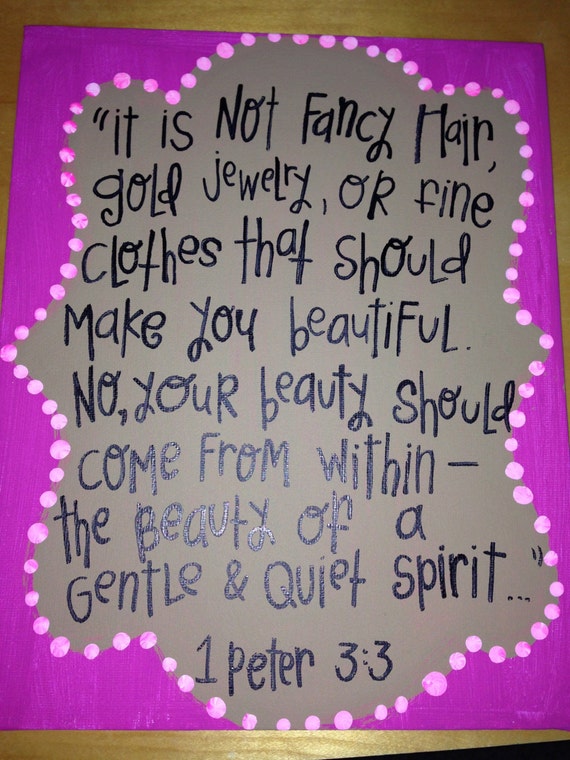 "it is Not Fancy Hair,
gold jewelry, OR fine
clothes that should
make you beautiful.
No, your beauty should
come from within—
the beauty of a
Gentle & Quiet spirit..."
1 peter 3:3